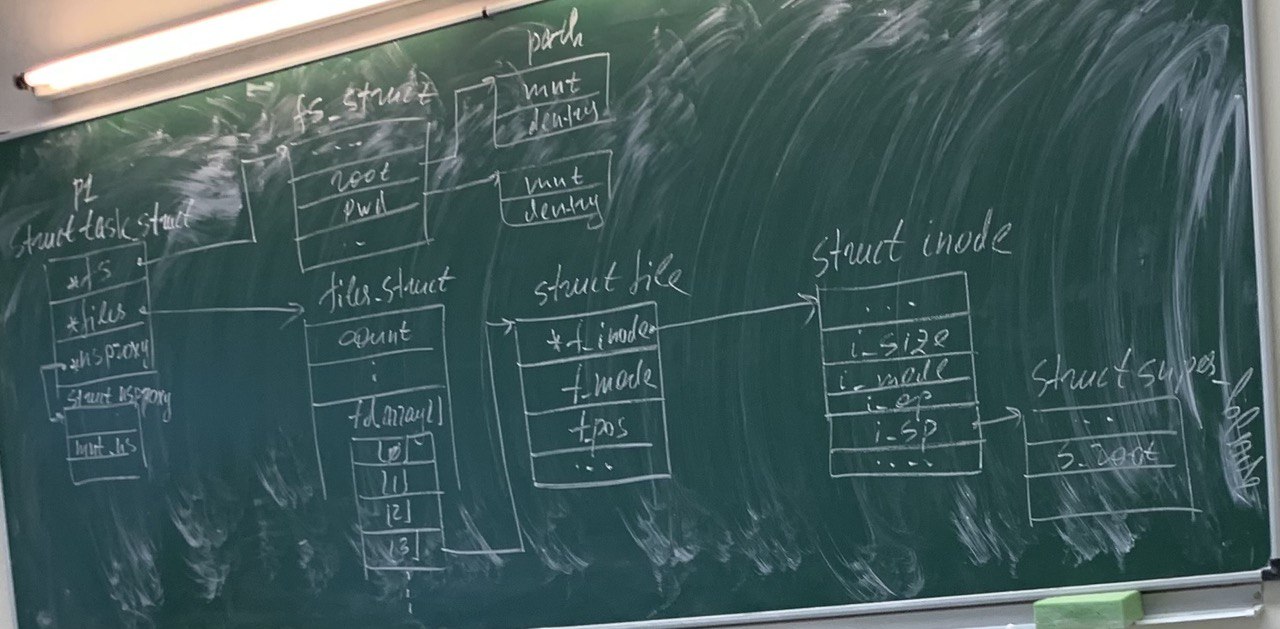 P1
struct task_struct
*fs
*files
*nsproxy
struct nsproxy
mnt_ns
fs_struct
...
root
pwd
..
path
mnt
dentry
mnt
dentry
files_struct
count
fd_array[]
[0]
[1]
[2]
[3]
struct file
*f_inode
f_mode
f_pos
...
struct inode
...
i_size
i_mode
i_op
i_sp
....
struct super_
..
s_root